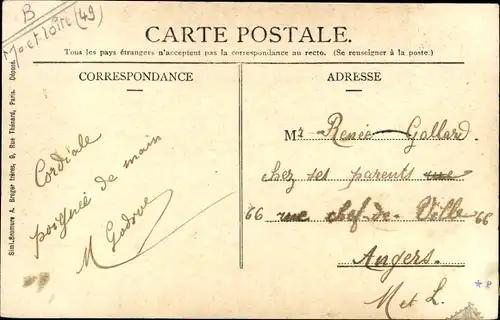 B
M et Loire (49)
CARTE POSTALE.
Tous les pays étrangers n'acceptent pas la correspondance au recto. (Se renseigner à la poste.)
CORRESPONDANCE
Cordiale
poignée de main
M Godrou
ADRESSE
Mr Renée Gallard
chez ses parents rue
66 rue chef-de-Ville 66
Angers.
M et L.
Simi-Bromure A. Breger frères, 9, Rue Thénard, Paris. Déposé